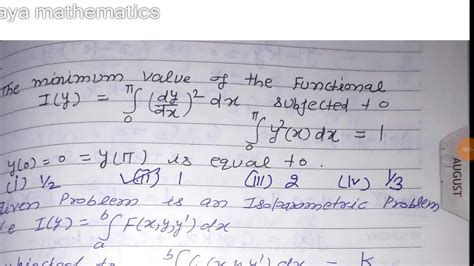 aya mathematics
The minimum value of the Functional
I(y) = ∫₀^π (dy/dx)² dx subjected to
∫₀^π y²(x) dx = 1
y(0) = 0 = y(π) is equal to.
(i) 1/2 (ii) 1 (iii) 2 (iv) 1/3
Given Problem is an Isoparametric Problem
I(y) = ∫ₐᵇ F(x,y,y') dx
AUGUST